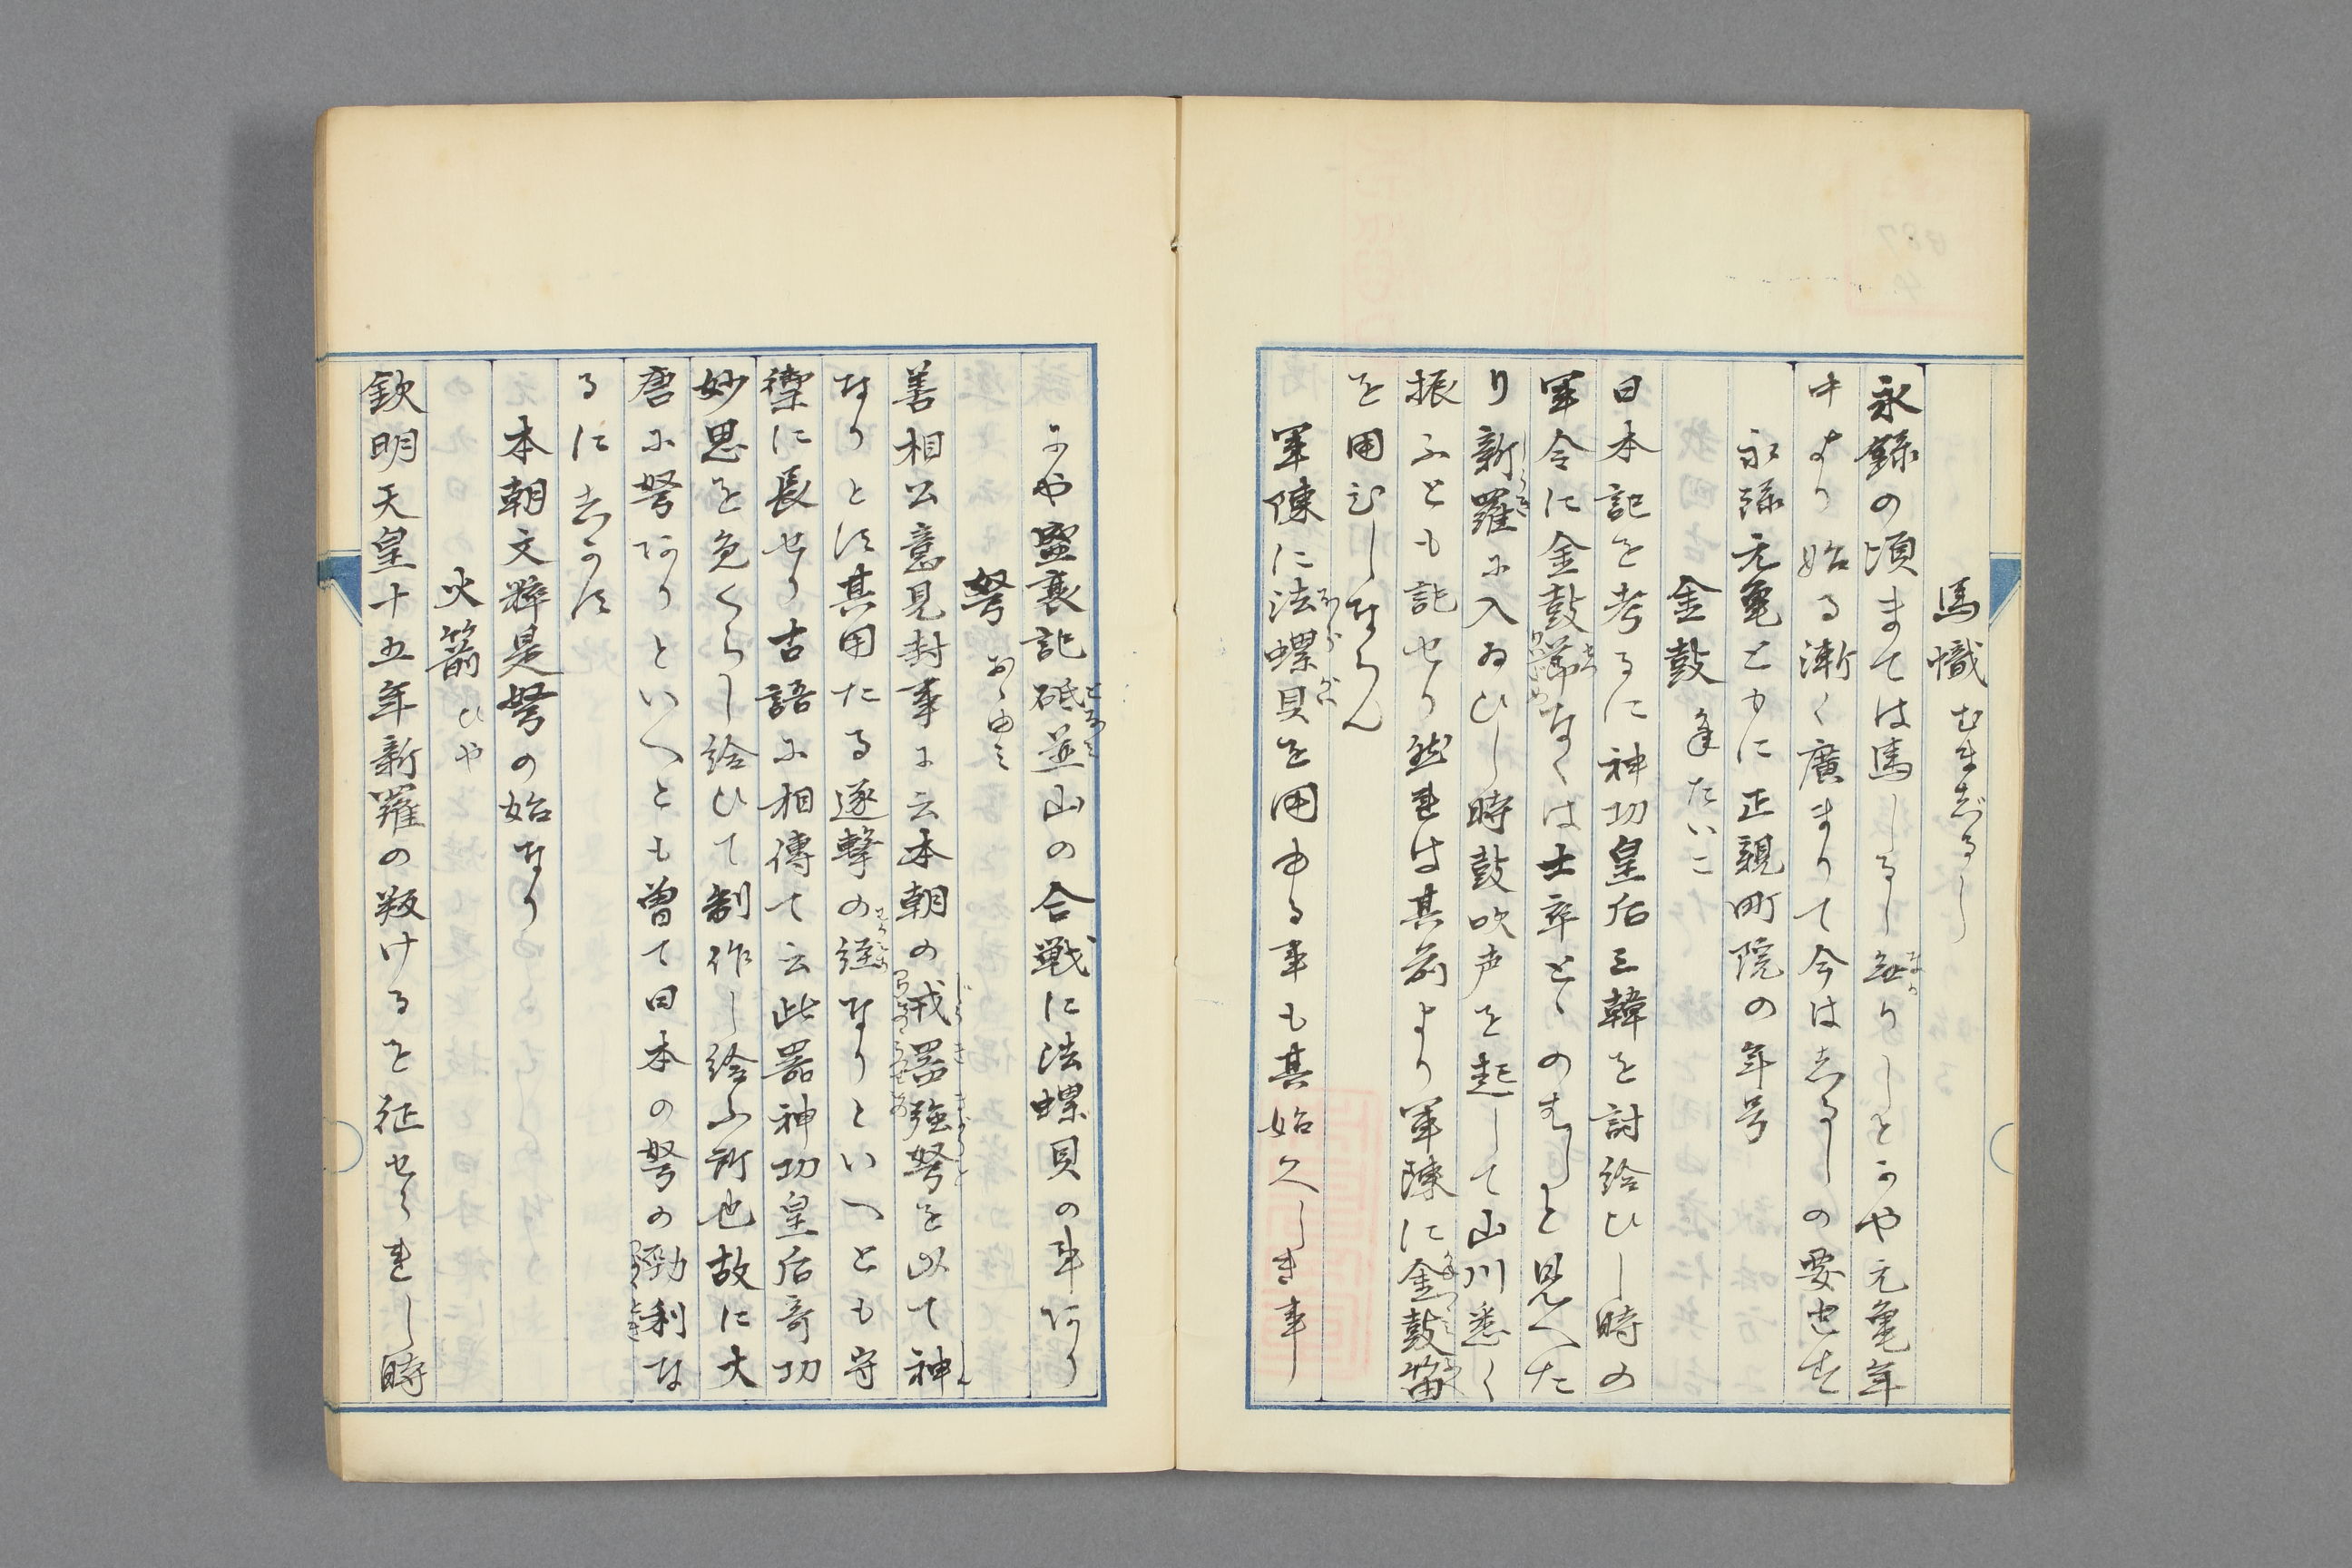 馬幟 むまじるし
永録の頃まては馬しるし無りしとかや元亀年
中より始る漸く廣まりて今は志るしの要也け
永録元亀ともに正親町院の年号
金鼓 かねたいこ
日本記を考るに神功皇后三韓を討給ひし時の
軍令に金鼓なくは士卒とゝのわしと見へた
り新羅に入ゐひし時鼓吹声を起して山川悉く
振ふとも記せり然れは其前より軍陳に金鼓笛
を用ひしならん
軍陳に法螺貝を用ゆる事も其始久しき事
にや盛衰記砥並山の合戦に法螺貝の事あり
弩 おゝゆミ
善相公意見封事に云本朝の戎器強弩を以て神
なりとす其用たる逐撃の短なりといへとも守
禦に長せり古語に相傳て云此器神功皇后奇功
妙思を免くらし給ひて制作し給ふ所也故に大
唐に弩ありといへとも曽て日本の弩の勁利な
るに志かす
本朝文粹是弩の始なり
火箭 ひや
欽明天皇十五年新羅の叛けるを征せられし時